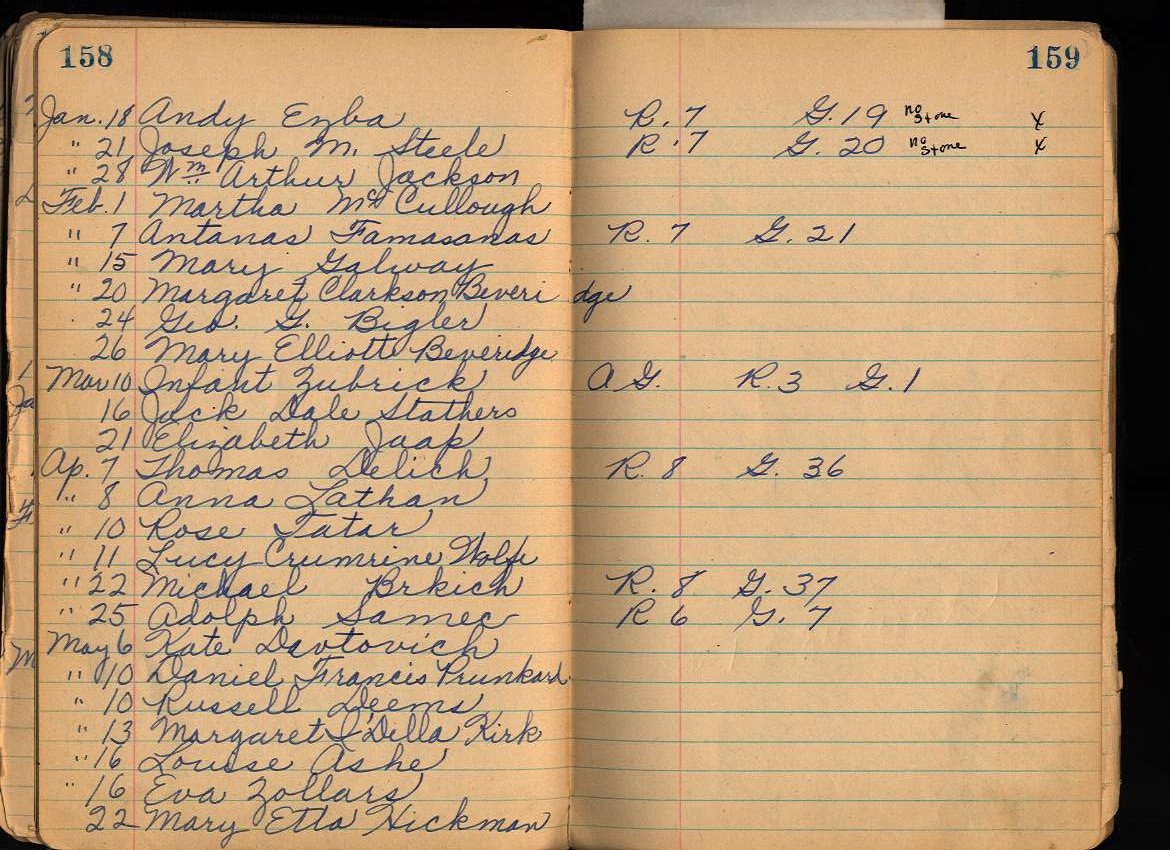 158 159
Jan. 18 Andy Ezba R. 7 G. 19 no stone x
" 21 Joseph M. Steele R. 7 G. 20 no stone x
" 28 Wm Arthur Jackson
Feb. 1 Martha McCullough
" 7 Antanas Tamasanas R. 7 G. 21
" 15 Mary Galway
" 20 Margaret Clarkson Beveridge
24 Geo. G. Bigler
26 Mary Elliott Beveridge
Mar 10 Infant Zubrick A G. R. 3 G. 1
16 Jack Dale Stathers
21 Elizabeth Jaap
Ap. 7 Thomas Delich R. 8 G. 36
" 8 Anna Lathan
" 10 Rose Tatar
" 11 Lucy Crumrine Wolfe
" 22 Michael Brkich R. 8 G. 37
" 25 Adolph Samec R 6 G. 7
May 6 Kate Devtovich
" 10 Daniel Francis Prunkard
" 10 Russell Deems
" 13 Margaret I Della Kirk
" 16 Louise Ashe
" 16 Eva Zollars
22 Mary Etta Hickman